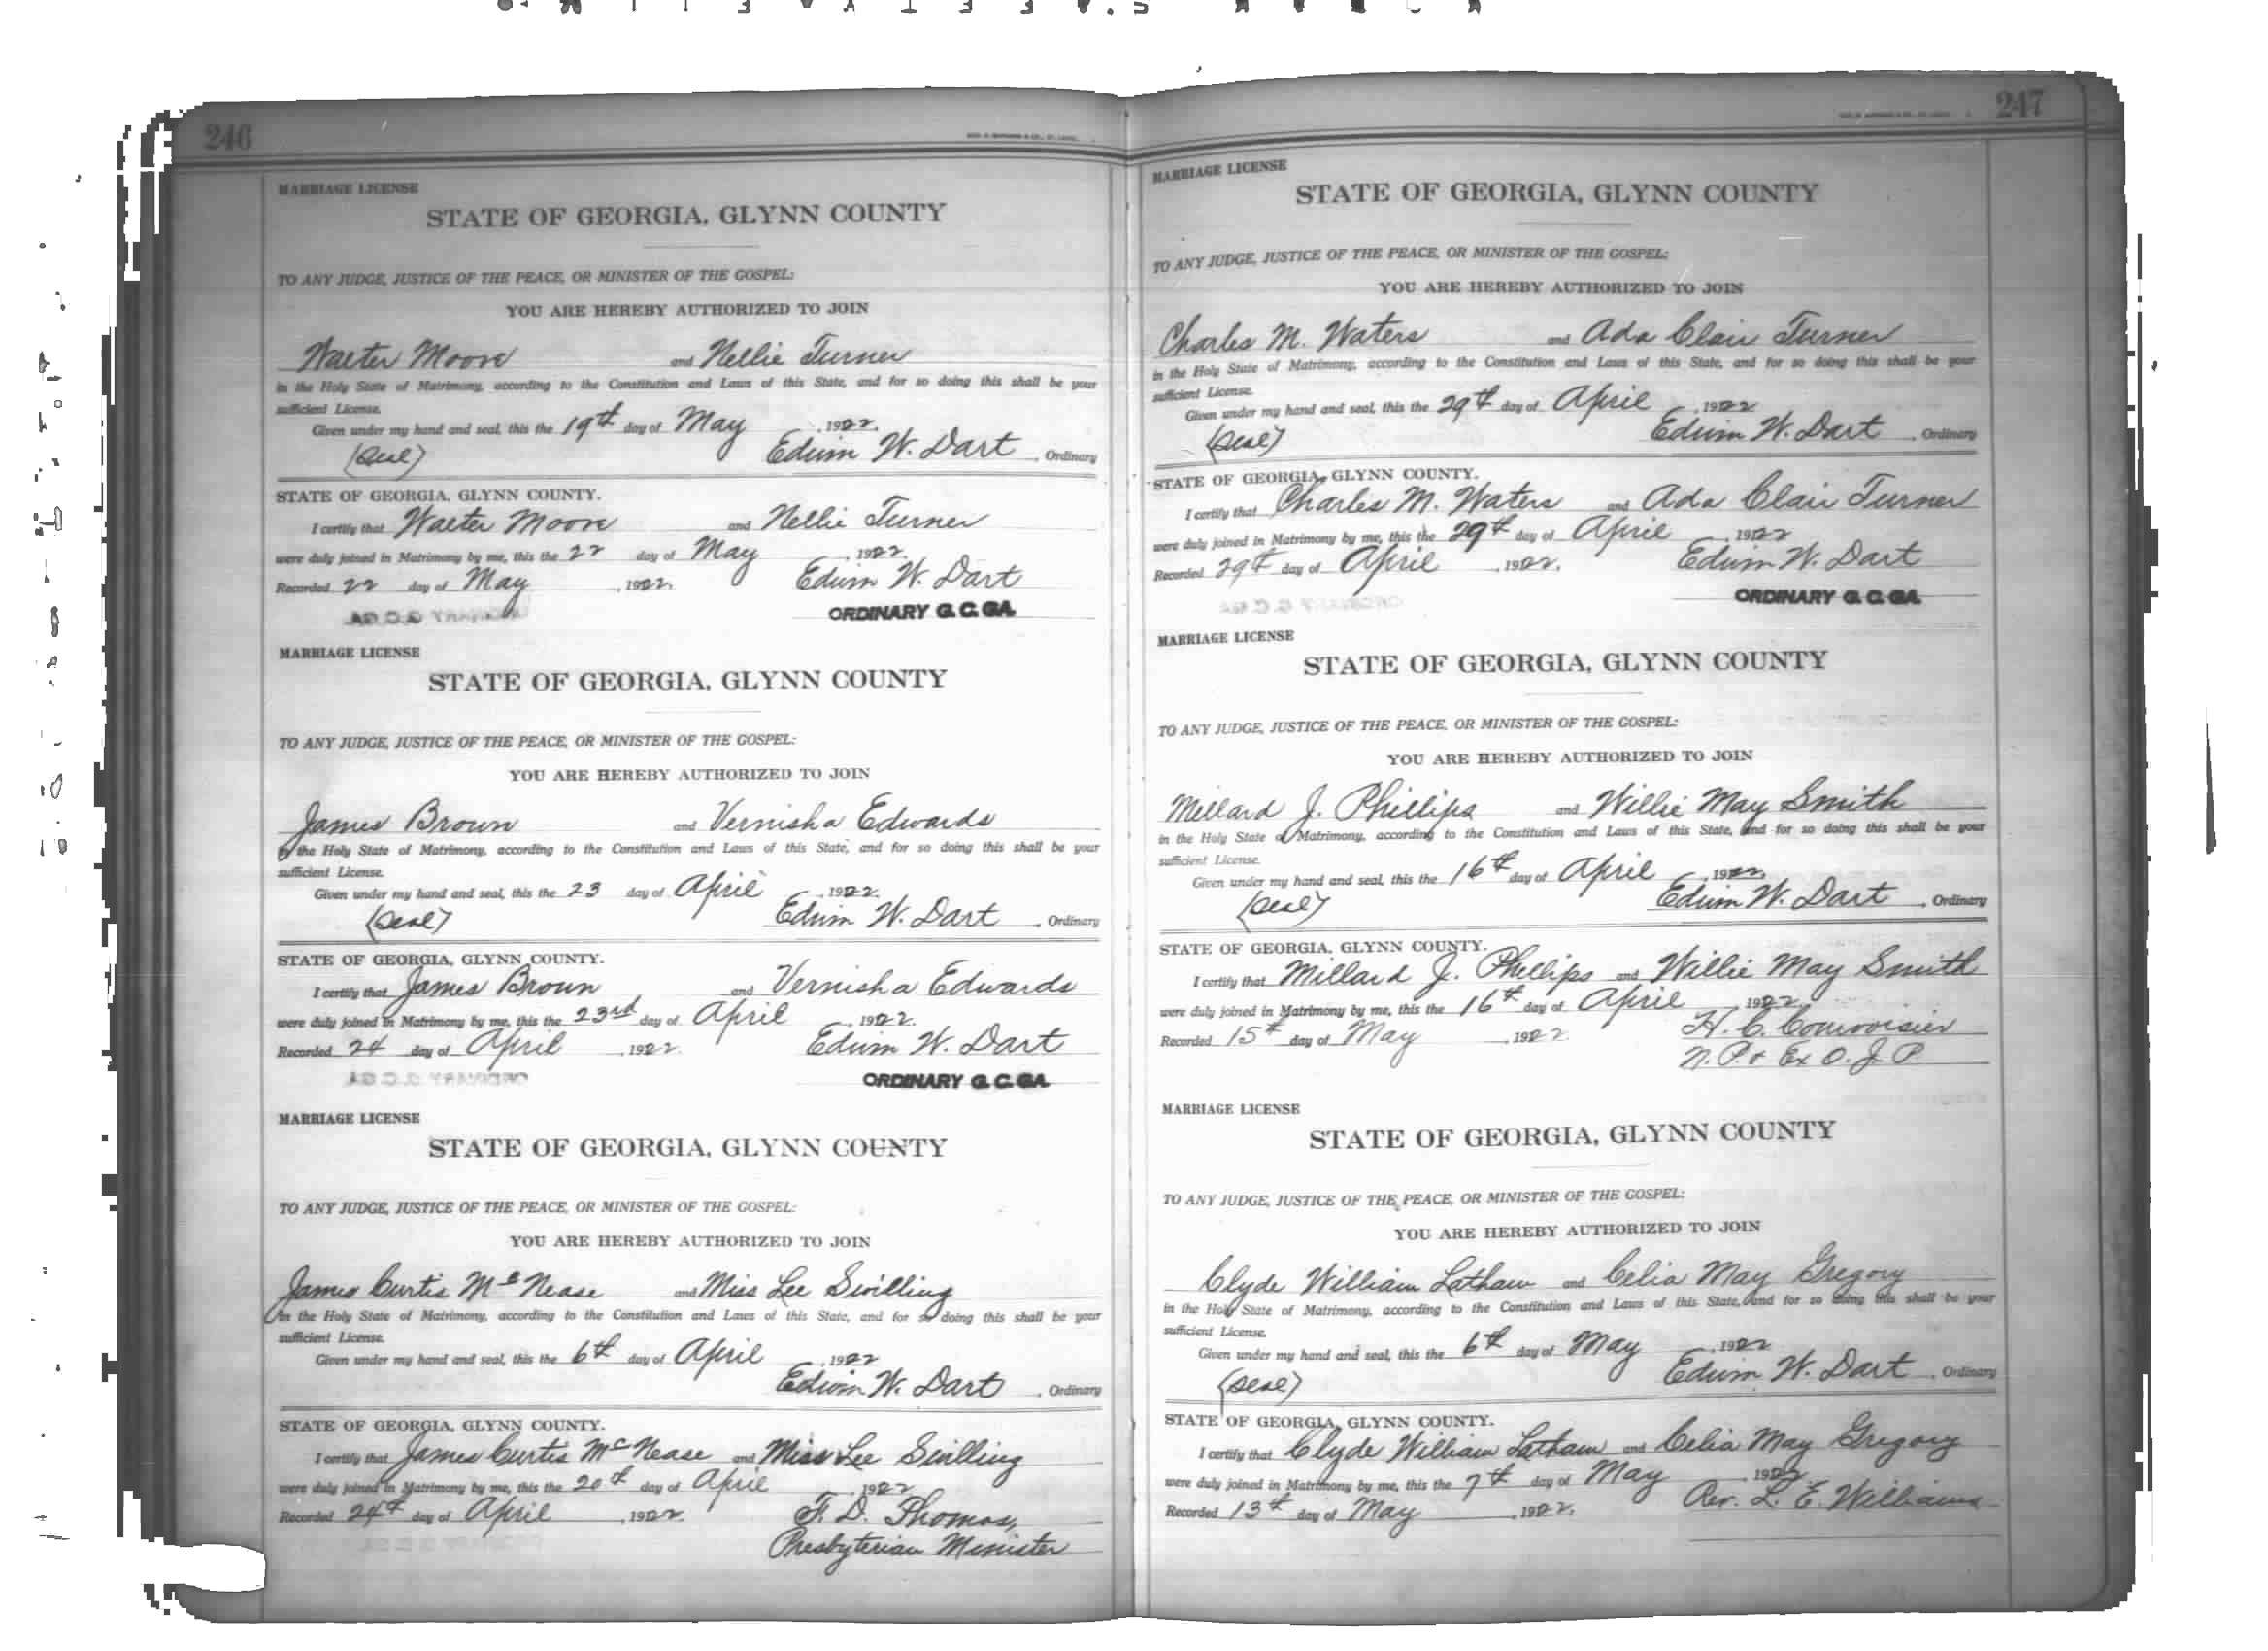 246
MARRIAGE LICENSE
STATE OF GEORGIA, GLYNN COUNTY
TO ANY JUDGE, JUSTICE OF THE PEACE, OR MINISTER OF THE GOSPEL:
YOU ARE HEREBY AUTHORIZED TO JOIN
Walter Moore and Nellie Turner
in the Holy State of Matrimony, according to the Constitution and Laws of this State, and for so doing this shall be your
sufficient License.
Given under my hand and seal, this the 19th day of May, 1922.
(Seal) Edwin W. Dart, Ordinary
STATE OF GEORGIA, GLYNN COUNTY.
I certify that Walter Moore and Nellie Turner
were duly joined in Matrimony by me, this the 22 day of May, 1922.
Recorded 22 day of May, 1922. Edwin W. Dart
ORDINARY G. C. GA.
MARRIAGE LICENSE
STATE OF GEORGIA, GLYNN COUNTY
TO ANY JUDGE, JUSTICE OF THE PEACE, OR MINISTER OF THE GOSPEL:
YOU ARE HEREBY AUTHORIZED TO JOIN
James Brown and Vernisha Edwards
in the Holy State of Matrimony, according to the Constitution and Laws of this State, and for so doing this shall be your
sufficient License.
Given under my hand and seal, this the 23 day of April, 1922.
(Seal) Edwin W. Dart, Ordinary
STATE OF GEORGIA, GLYNN COUNTY.
I certify that James Brown and Vernisha Edwards
were duly joined in Matrimony by me, this the 23rd day of April, 1922.
Recorded 24 day of April, 1922. Edwin W. Dart
ORDINARY G. C. GA.
MARRIAGE LICENSE
STATE OF GEORGIA, GLYNN COUNTY
TO ANY JUDGE, JUSTICE OF THE PEACE, OR MINISTER OF THE GOSPEL:
YOU ARE HEREBY AUTHORIZED TO JOIN
James Curtis McNease and Miss Lee Swilling
in the Holy State of Matrimony, according to the Constitution and Laws of this State, and for so doing this shall be your
sufficient License.
Given under my hand and seal, this the 6th day of April, 1922
Edwin W. Dart, Ordinary
STATE OF GEORGIA, GLYNN COUNTY.
I certify that James Curtis McNease and Miss Lee Swilling
were duly joined in Matrimony by me, this the 20th day of April, 1922
Recorded 24th day of April, 1922. F. D. Thomas,
Presbyterian Minister
247
MARRIAGE LICENSE
STATE OF GEORGIA, GLYNN COUNTY
TO ANY JUDGE, JUSTICE OF THE PEACE, OR MINISTER OF THE GOSPEL:
YOU ARE HEREBY AUTHORIZED TO JOIN
Charles M. Waters and Ada Clair Turner
in the Holy State of Matrimony, according to the Constitution and Laws of this State, and for so doing this shall be your
sufficient License.
Given under my hand and seal, this the 29th day of April, 1922
(Seal) Edwin W. Dart, Ordinary
STATE OF GEORGIA, GLYNN COUNTY.
I certify that Charles M. Waters and Ada Clair Turner
were duly joined in Matrimony by me, this the 29th day of April, 1922
Recorded 29th day of April, 1922. Edwin W. Dart
ORDINARY G. C. GA.
MARRIAGE LICENSE
STATE OF GEORGIA, GLYNN COUNTY
TO ANY JUDGE, JUSTICE OF THE PEACE, OR MINISTER OF THE GOSPEL:
YOU ARE HEREBY AUTHORIZED TO JOIN
Millard J. Phillips and Willie May Smith
in the Holy State of Matrimony, according to the Constitution and Laws of this State, and for so doing this shall be your
sufficient License.
Given under my hand and seal, this the 16th day of April, 1922
(Seal) Edwin W. Dart, Ordinary
STATE OF GEORGIA, GLYNN COUNTY.
I certify that Millard J. Phillips and Willie May Smith
were duly joined in Matrimony by me, this the 16th day of April, 1922
Recorded 15th day of May, 1922 H. C. Courvoisier
N. P. & Ex O. J. P.
MARRIAGE LICENSE
STATE OF GEORGIA, GLYNN COUNTY
TO ANY JUDGE, JUSTICE OF THE PEACE, OR MINISTER OF THE GOSPEL:
YOU ARE HEREBY AUTHORIZED TO JOIN
Clyde William Latham and Celia May Gregory
in the Holy State of Matrimony, according to the Constitution and Laws of this State, and for so doing this shall be your
sufficient License.
Given under my hand and seal, this the 6th day of May, 1922
(Seal) Edwin W. Dart, Ordinary
STATE OF GEORGIA, GLYNN COUNTY.
I certify that Clyde William Latham and Celia May Gregory
were duly joined in Matrimony by me, this the 7th day of May, 1922
Recorded 13th day of May, 1922. Rev. L. E. Williams